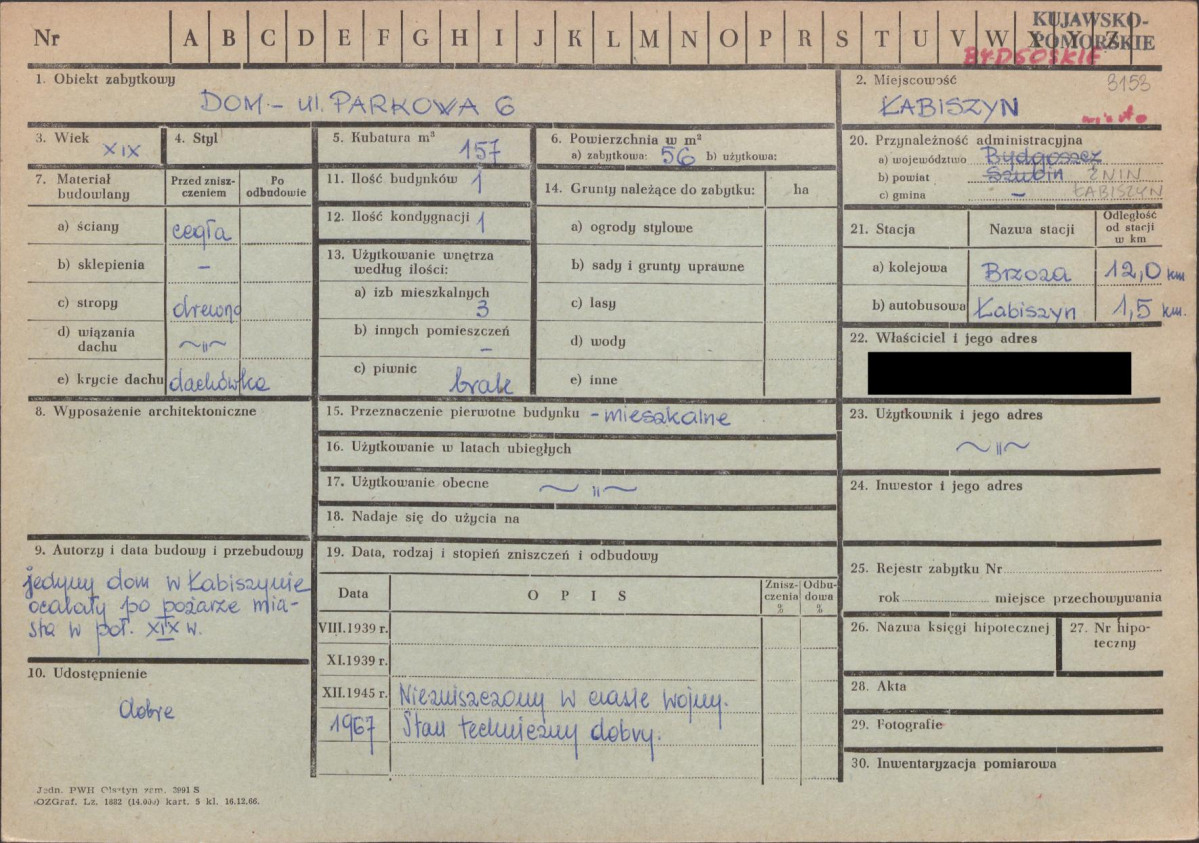 Nr A B C D E F G H I J K L M N O P R S T U V W X Y Z
KUJAWSKO-
POMORSKIE
BYDGOSKIE
1. Obiekt zabytkowy
DOM - ul. PARKOWA 6
2. Miejscowość
3153
ŁABISZYN
miasto
3. Wiek
XIX
4. Styl
5. Kubatura m³
157
6. Powierzchnia w m²
a) zabytkowa: 56 b) użytkowa:
20. Przynależność administracyjna
a) województwo Bydgoszcz
b) powiat Szubin ŻNIN
c) gmina – ŁABISZYN
7. Materiał budowlany
Przed znisz-
czeniem
Po
odbudowie
a) ściany cegła
b) sklepienia –
c) stropy drewno
d) wiązania
dachu ~ıı~
e) krycie dachu dachówka
11. Ilość budynków 1
12. Ilość kondygnacji 1
13. Użytkowanie wnętrza
według ilości:
a) izb mieszkalnych
3
b) innych pomieszczeń
–
c) piwnic
brak
14. Grunty należące do zabytku: ha
a) ogrody stylowe
b) sady i grunty uprawne
c) lasy
d) wody
e) inne
21. Stacja Nazwa stacji
Odległość
od stacji
w km
a) kolejowa Brzoza 12,0 km
b) autobusowa Łabiszyn 1,5 km.
22. Właściciel i jego adres
8. Wyposażenie architektoniczne
15. Przeznaczenie pierwotne budynku - mieszkalne
16. Użytkowanie w latach ubiegłych
17. Użytkowanie obecne ~ıı~
18. Nadaje się do użycia na
23. Użytkownik i jego adres
~ıı~
24. Inwestor i jego adres
9. Autorzy i data budowy i przebudowy
jedyny dom w Łabiszynie
ocalały po pożarze mia-
sta w poł. XIX w.
10. Udostępnienie
dobre
19. Data, rodzaj i stopień zniszczeń i odbudowy
Data
OPIS
Znisz-
czenia
%
Odbu-
dowa
%
VIII.1939 r.
XI.1939 r.
XII.1945 r. Niezniszczony w czasie wojny.
1967 Stan techniczny dobry.
25. Rejestr zabytku Nr
rok miejsce przechowywania
26. Nazwa księgi hipotecznej
27. Nr hipo-
teczny
28. Akta
29. Fotografie
30. Inwentaryzacja pomiarowa
Jedn. PWH Olsztyn zam. 3991 S
OZGraf. Lz. 1682 (14.000) kart. 5 kl. 16.12.66.